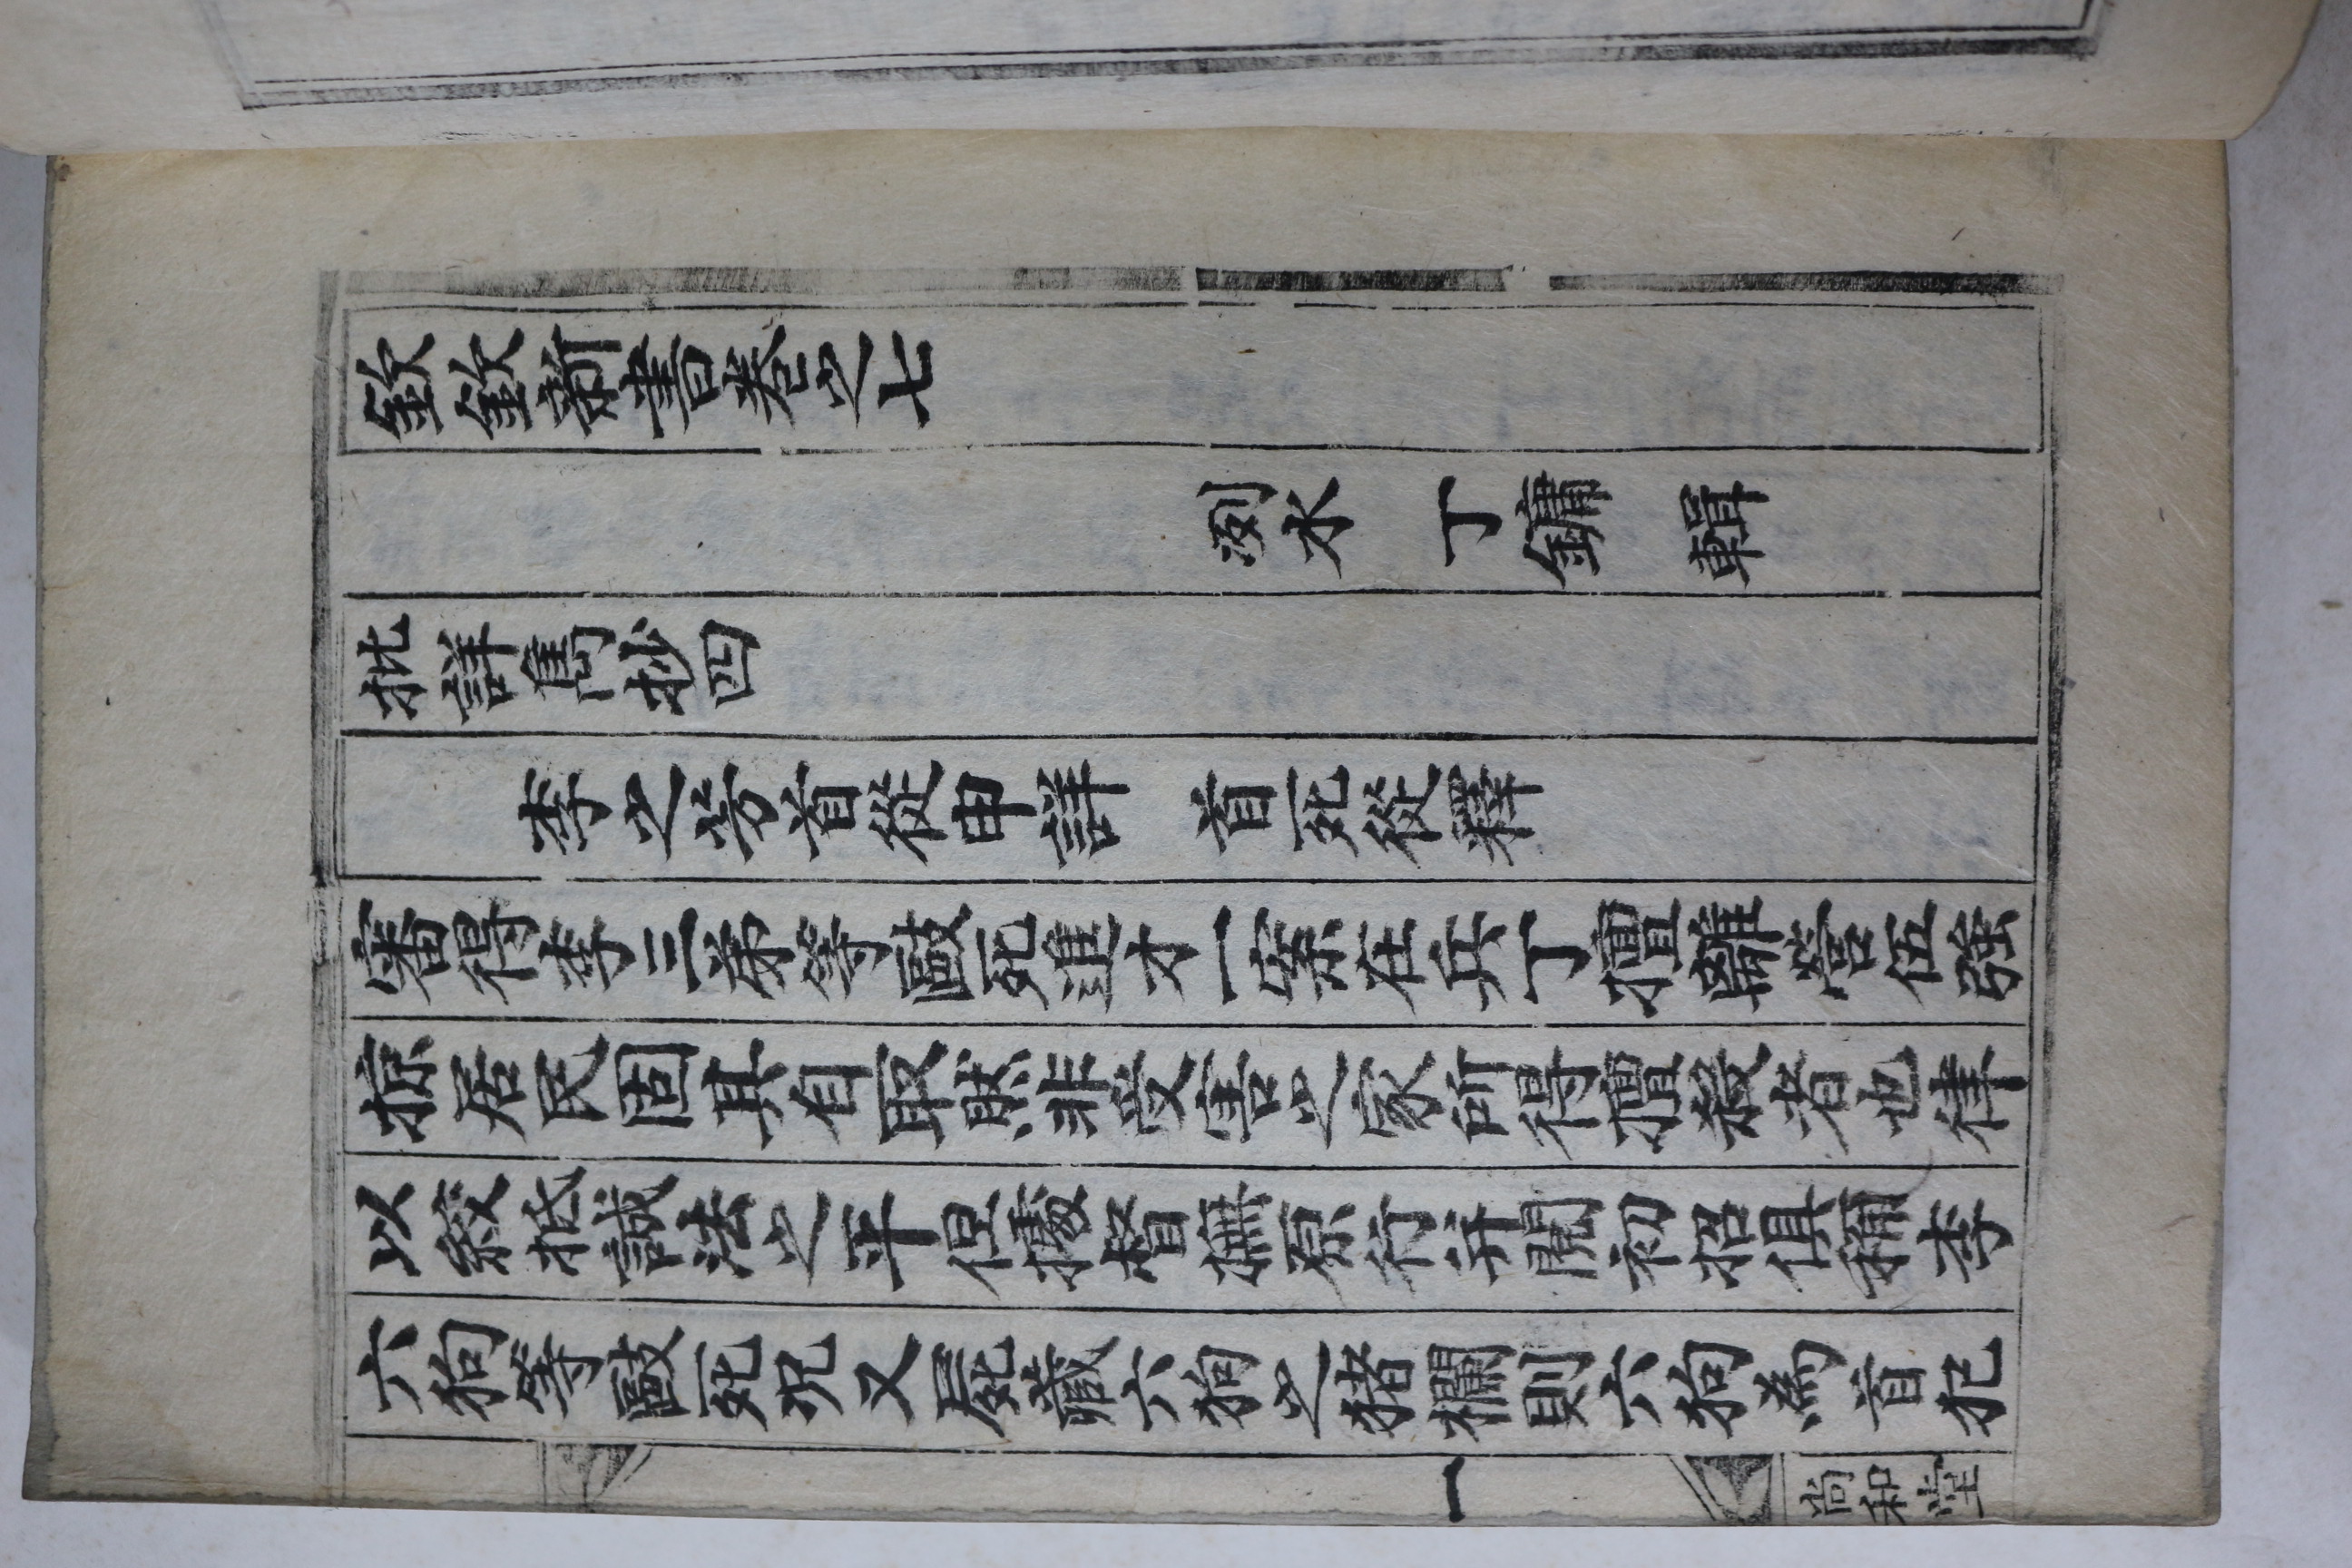 欽欽新書卷之七
洌水 丁鏞 輯
批詳雋抄四
李之芳首從申詳 首死從釋
審得李三弟等毆死進才一案在兵丁擅離營伍強
掠居民固其自取然非受害之家所得擅殺者也律
以絞抵誠法之平但據督撫原行并閱初招俱稱李
六狗等毆死况又屍藏六狗之猪欄則六狗為首犯
一
尚和堂